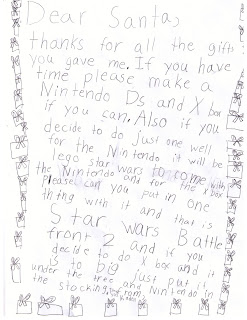 Dear Santa,
thanks for all the gifts
you gave me. If you have
time please make a
Nintendo Ds and X box
if you can. Also if you
decide to do just one well
for the Nintendo it will be
lego star wars to come with
the Nintendo and for the x box
Please can you put in one
thing with it and that is
Star wars Battle
front 2 and if you
decide to do X box and it
is to big just put it
under the tree and Nintendo in
the stocking. from